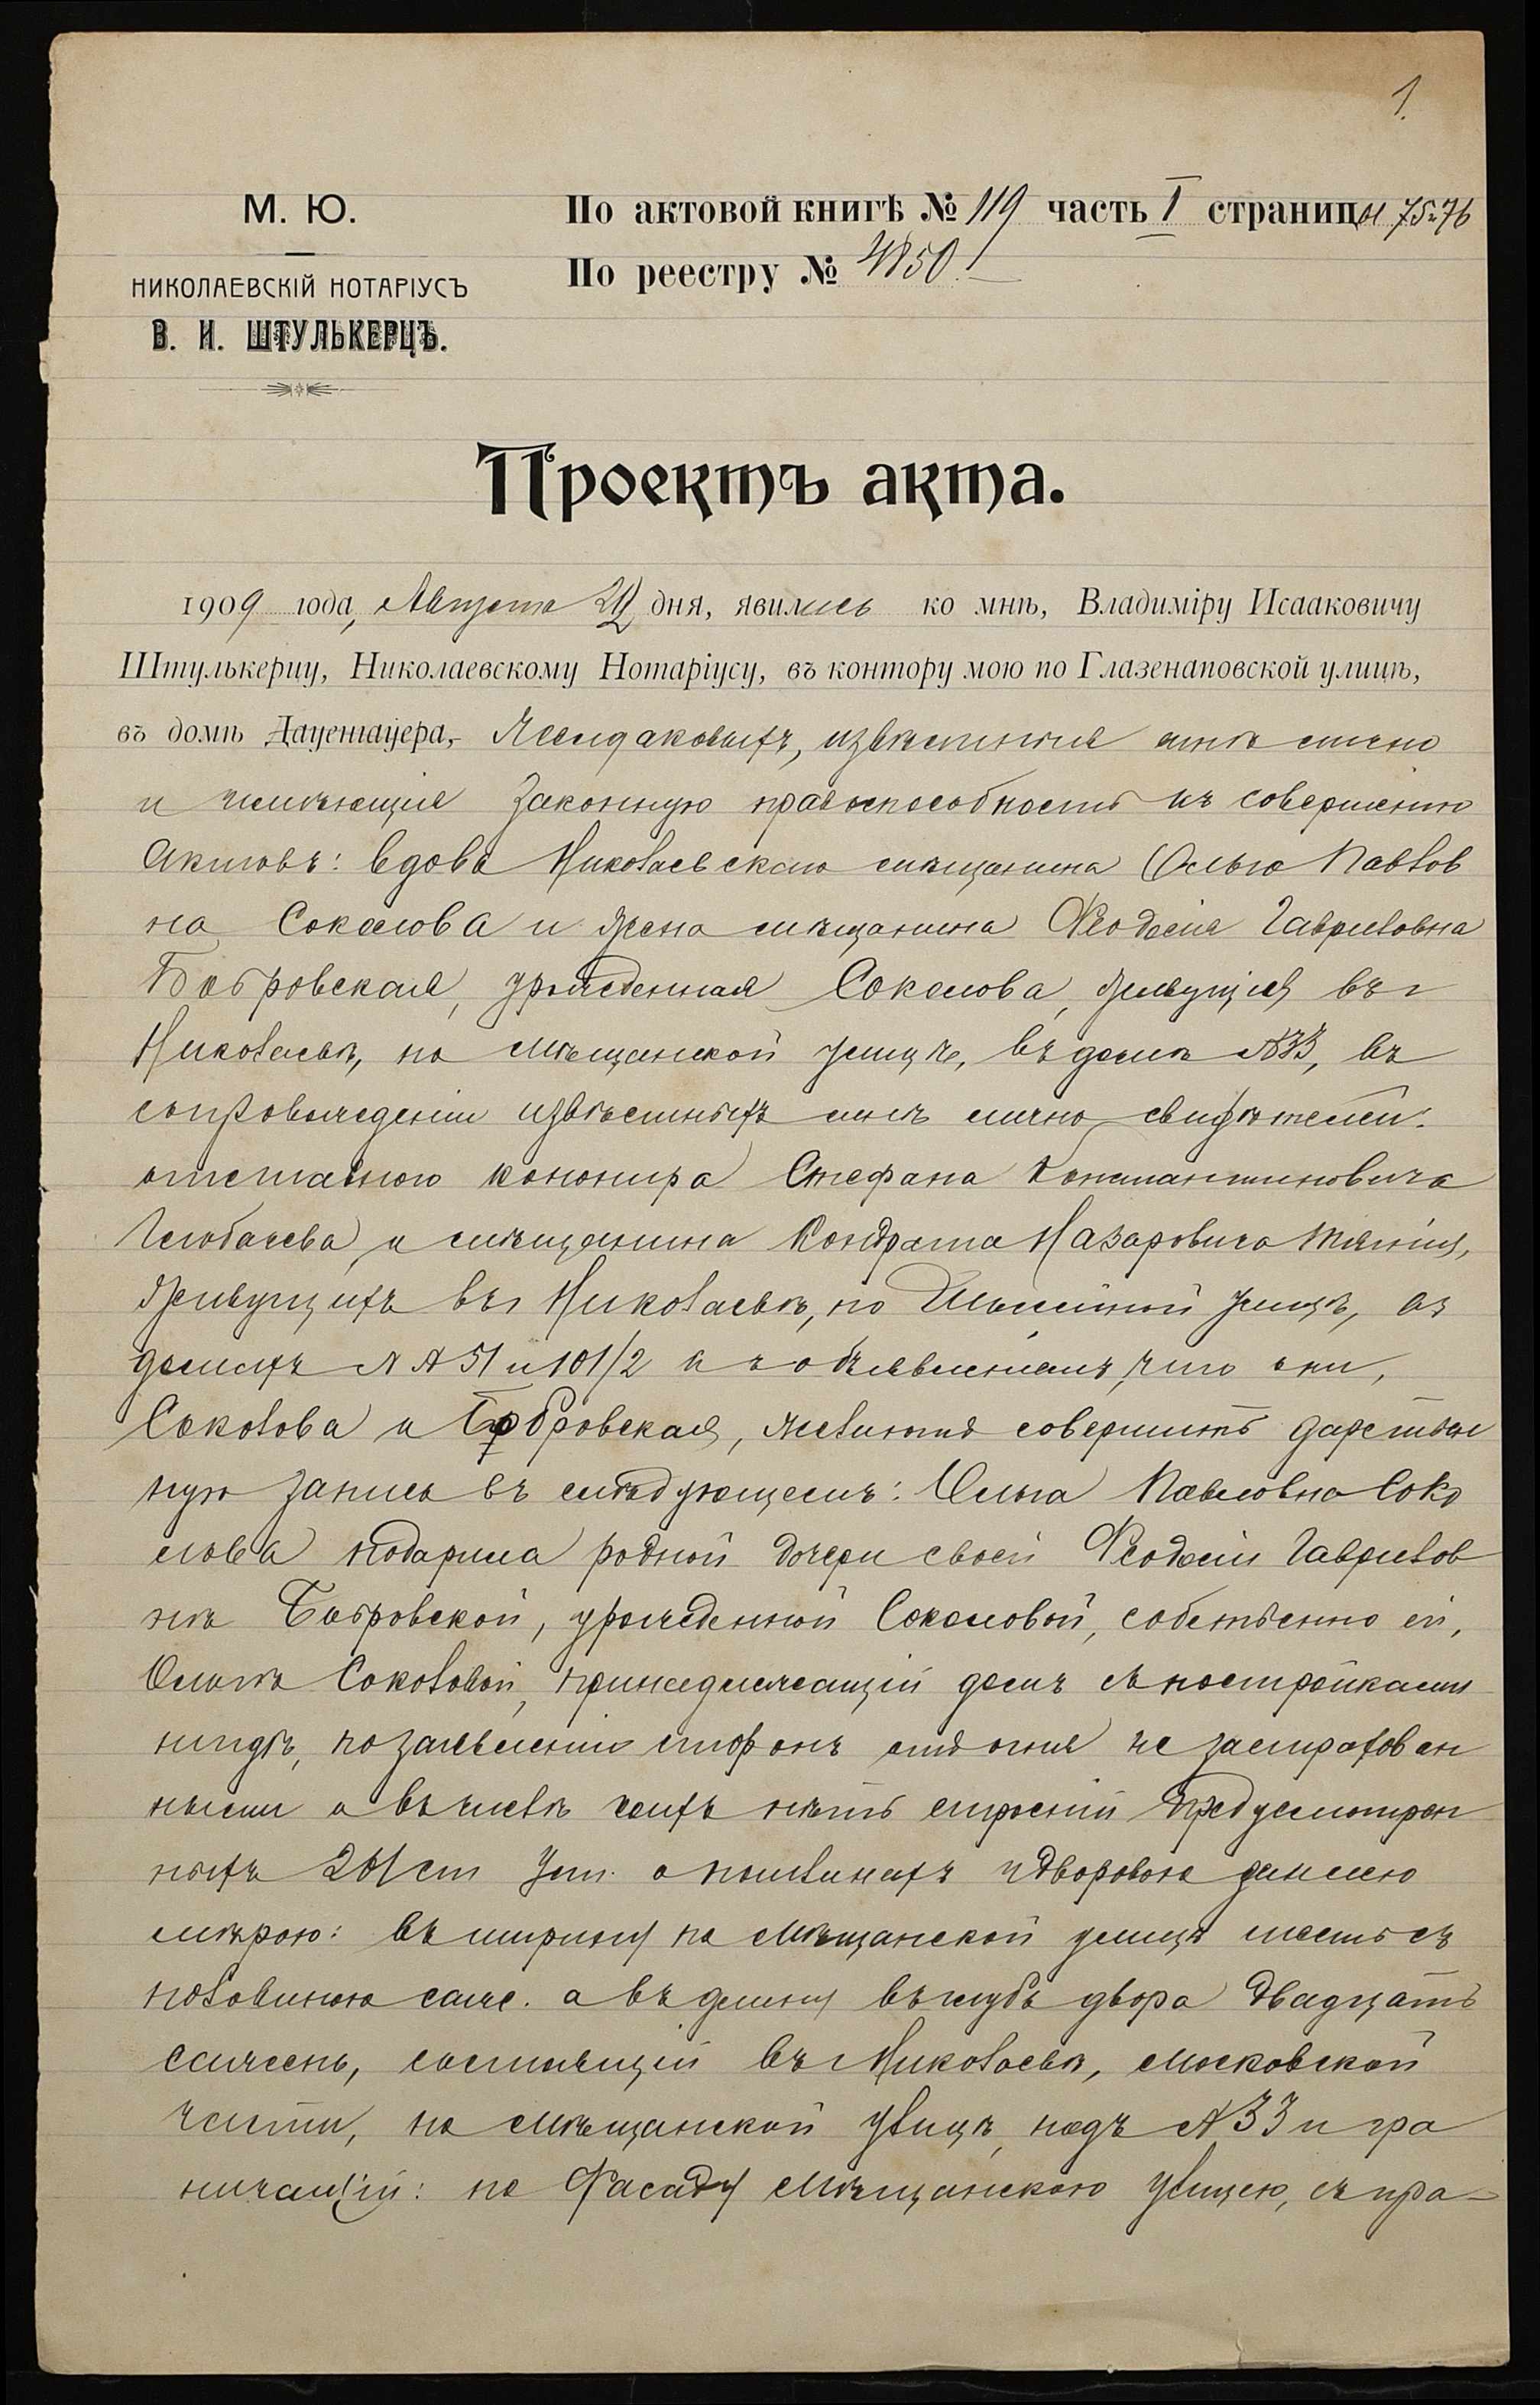 1.
М. Ю.
По актовой книгѣ № 119 часть I страницы 75-76
НИКОЛАЕВСКІЙ НОТАРІУСЪ
По реестру № 4850.
В. И. ШТУЛЬКЕРЦЪ.
Проектъ акта.
1909 года, Августа дня, явились ко мнѣ, Владиміру Исааковичу
Штулькерцу, Николаевскому Нотаріусу, въ контору мою по Глазенаповской улицѣ,
въ домѣ Дауенгауера, извѣстныя мнѣ лично
и имѣющія законную правоспособность къ совершенію
актовъ: вдова Николаевскаго мѣщанина Ольга Павлов
на Соколова и жена мѣщанина Феодосія Гавриловна
Бобровская, урожденная Соколова, живущія въ
Николаевѣ, по Мѣщанской улицѣ, въ домѣ №33, въ
сопровожденіи извѣстныхъ мнѣ лично свидѣтелей:
отставного канонира Стефана Константиновича
и мѣщанина Кондрата Назаровича
живущихъ въ Николаевѣ, по улицѣ, въ
домахъ №№ 51 и 101/2 съ объявленіемъ, что они,
Соколова и Бобровская, желаютъ совершить дарствен
ную запись въ слѣдующемъ: Ольга Павловна Соко
лова подарила родной дочери своей Феодосіи Гаврилов
нѣ Бобровской, урожденной Соколовой, собственно ей,
Ольгѣ Соколовой, принадлежащій домъ съ постройками
нигдѣ, по заявленію сторонъ отъ огня не застрахован
ными и въ числѣ коихъ нѣтъ строеній предусмотрен
ныхъ 261 ст Уст. о пошлинахъ и дворовою землею
мѣрою: въ ширину по Мѣщанской улицѣ шесть съ
половиною саж. а въ длину въ глубь двора двадцать
сажень, состоящій въ Николаевѣ, Московской
части, по Мѣщанской улицѣ, подъ №33 и гра
ничащій: по фасаду Мѣщанскою улицею, съ пра-